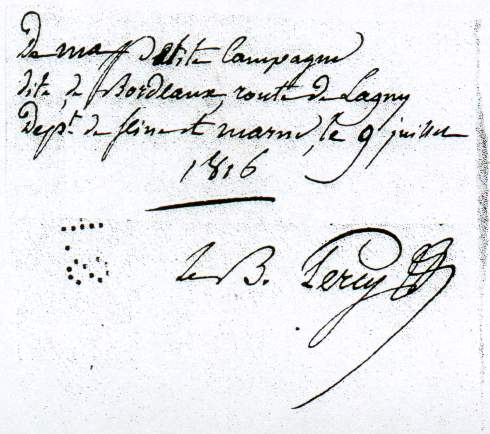 De ma petite Campagne
dite de Bordeaux route de Lagny
Dept. de Seine et marne, le 9 juillet
1816
Le B. Percy